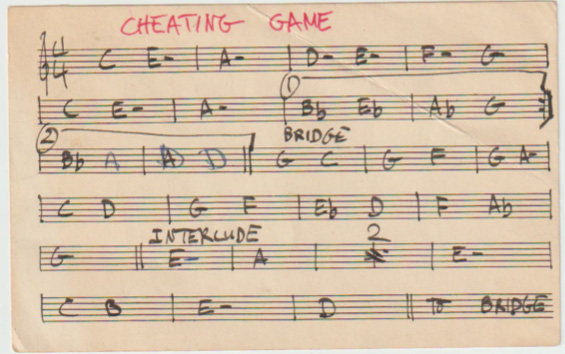 CHEATING GAME
4/4 C E- | A- | D- E- | F- G- |
C E- | A- | ① Bb Eb | Ab G :||
② Bb A | A D || BRIDGE G C | G F | G A- |
C D | G F | Eb D | F Ab |
G- || INTERLUDE E- | A | 2 | E- |
C B | E- | D || TO BRIDGE